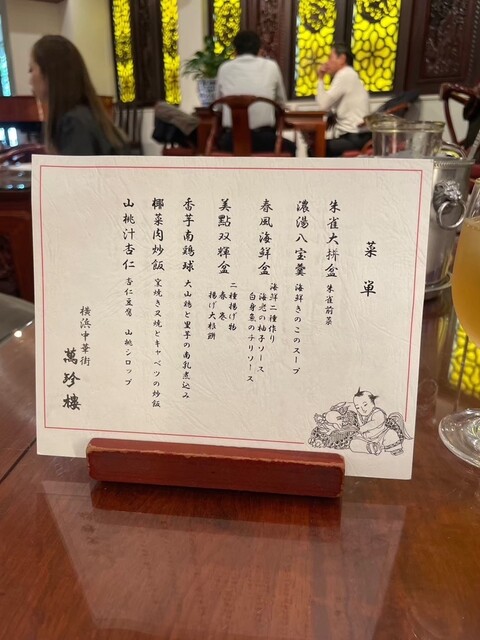 菜単
朱雀大拼盆 朱雀前菜
濃湯八宝羹 海鮮きのこのスープ
春風海鮮盒 海鮮二種作り
海老の柚子ソース
白身魚のチリソース
美點双輝盒 二種揚げ物
春巻
揚げ大根餅
香芋南鶏球 大山鶏と里芋の南乳煮込み
椰菜肉炒飯 窯焼き叉焼とキャベツの炒飯
山桃汁杏仁 杏仁豆腐 山桃シロップ
横浜中華街
萬珍樓